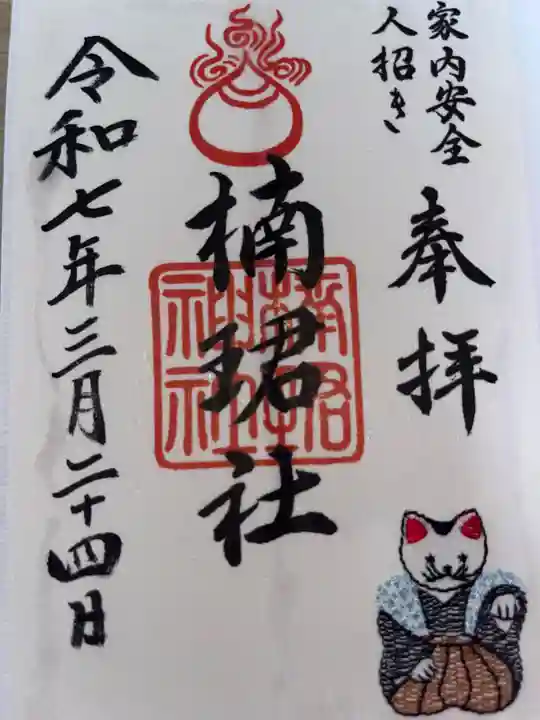 家内安全
人招き
奉拝
楠珺社
令和七年三月二十四日